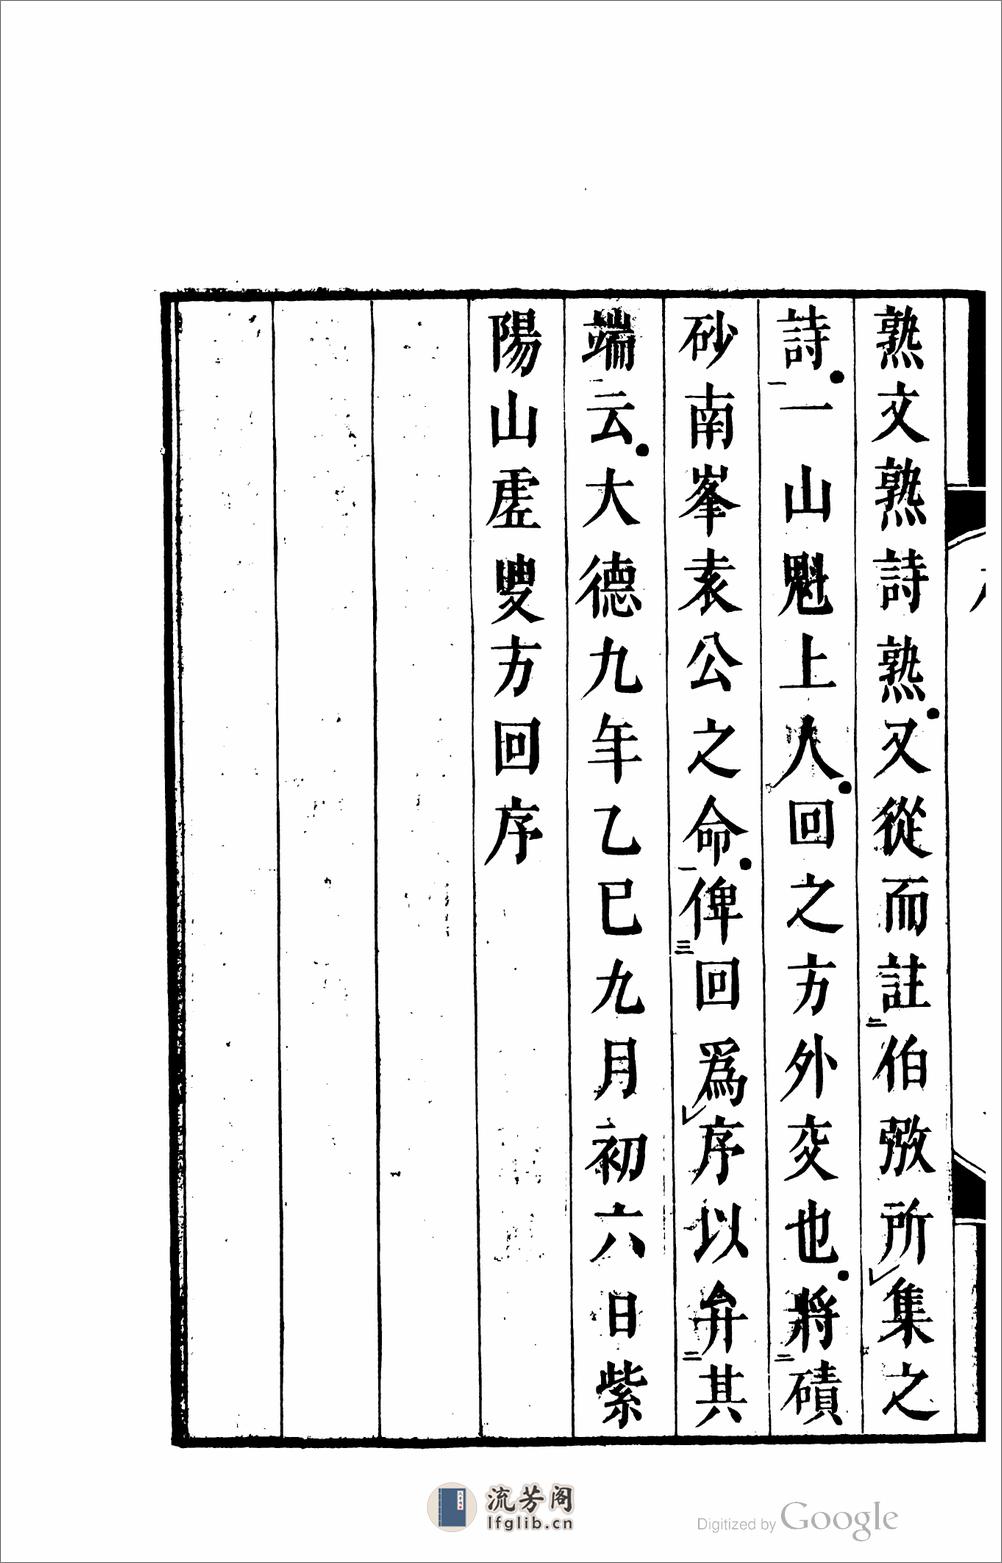 熟文熟詩熟又從而註伯弜所集之
詩一山魁上人回之方外交也將磧
砂南峯袁公之命俾回爲序以弁其
端云大德九年乙巳九月初六日紫
陽山虗叟方回序
流芳阁
lfglib.cn
Digitized by Google